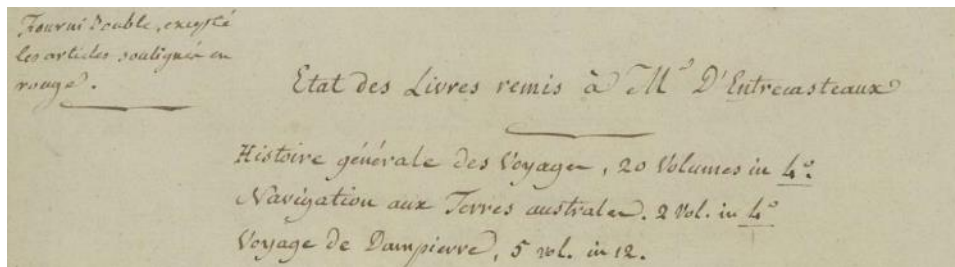 Fourni Double, excepté
les articles soulignés en
rouge.
Etat des Livres remis à M.r D'Entrecasteaux
Histoire générale des Voyages, 20 Volumes in 4.o
Navigation aux Terres australes. 2 Vol. in 4.o
Voyage de Dampierre, 5 vol. in 12.